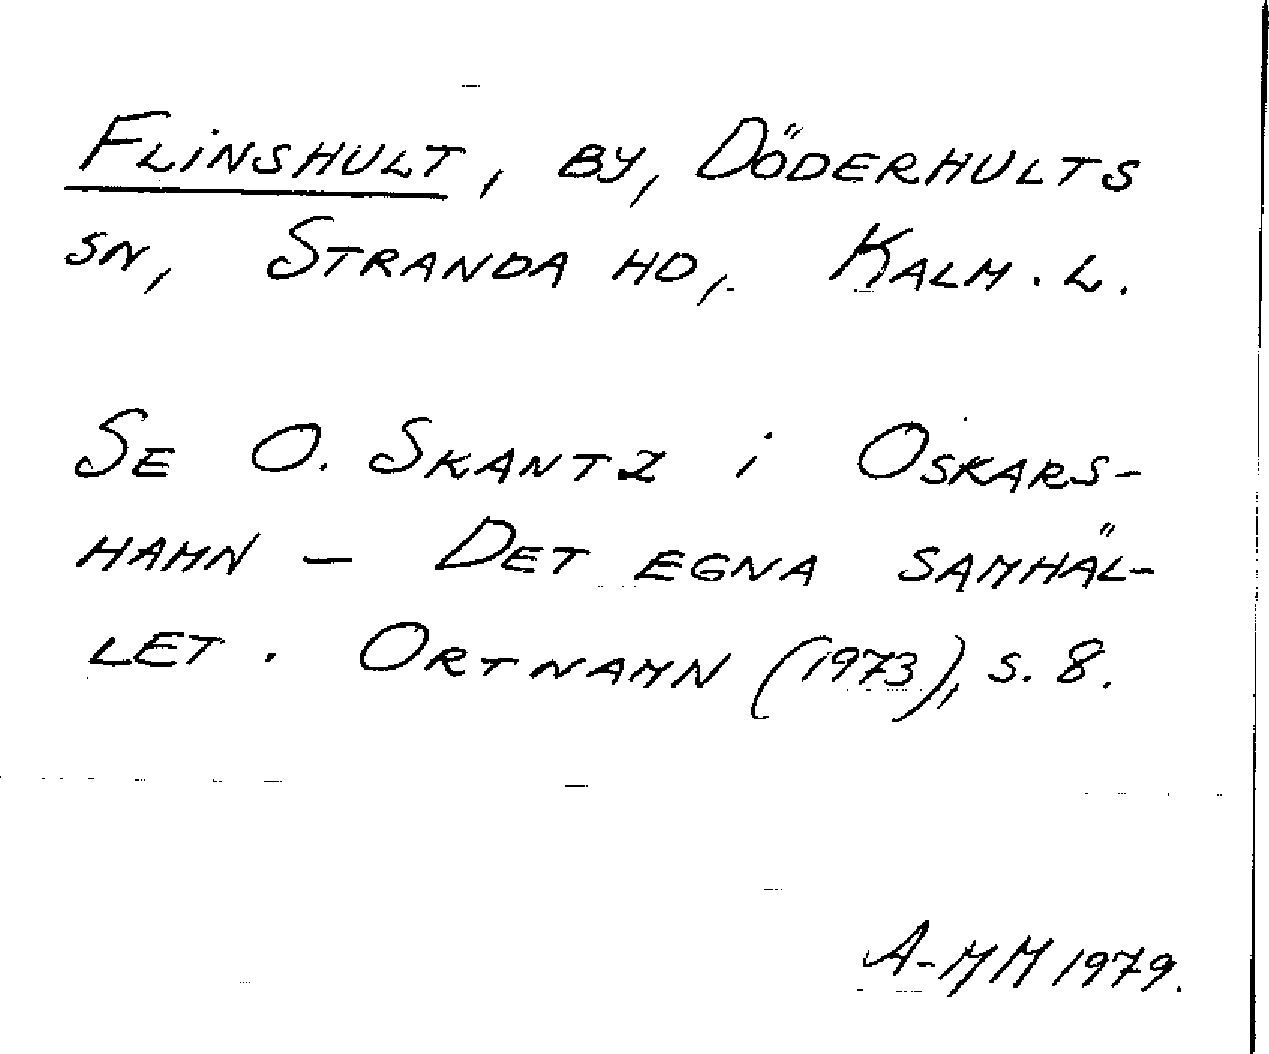 FLINSHULT, BY, DÖDERHULTS
SN, STRANDA HD, KALM. L.
SE O. SKANTZ i OSKARS-
HAMN – DET EGNA SAMHÄL-
LET. ORTNAMN (1973), S. 8.
A-MM 1979.